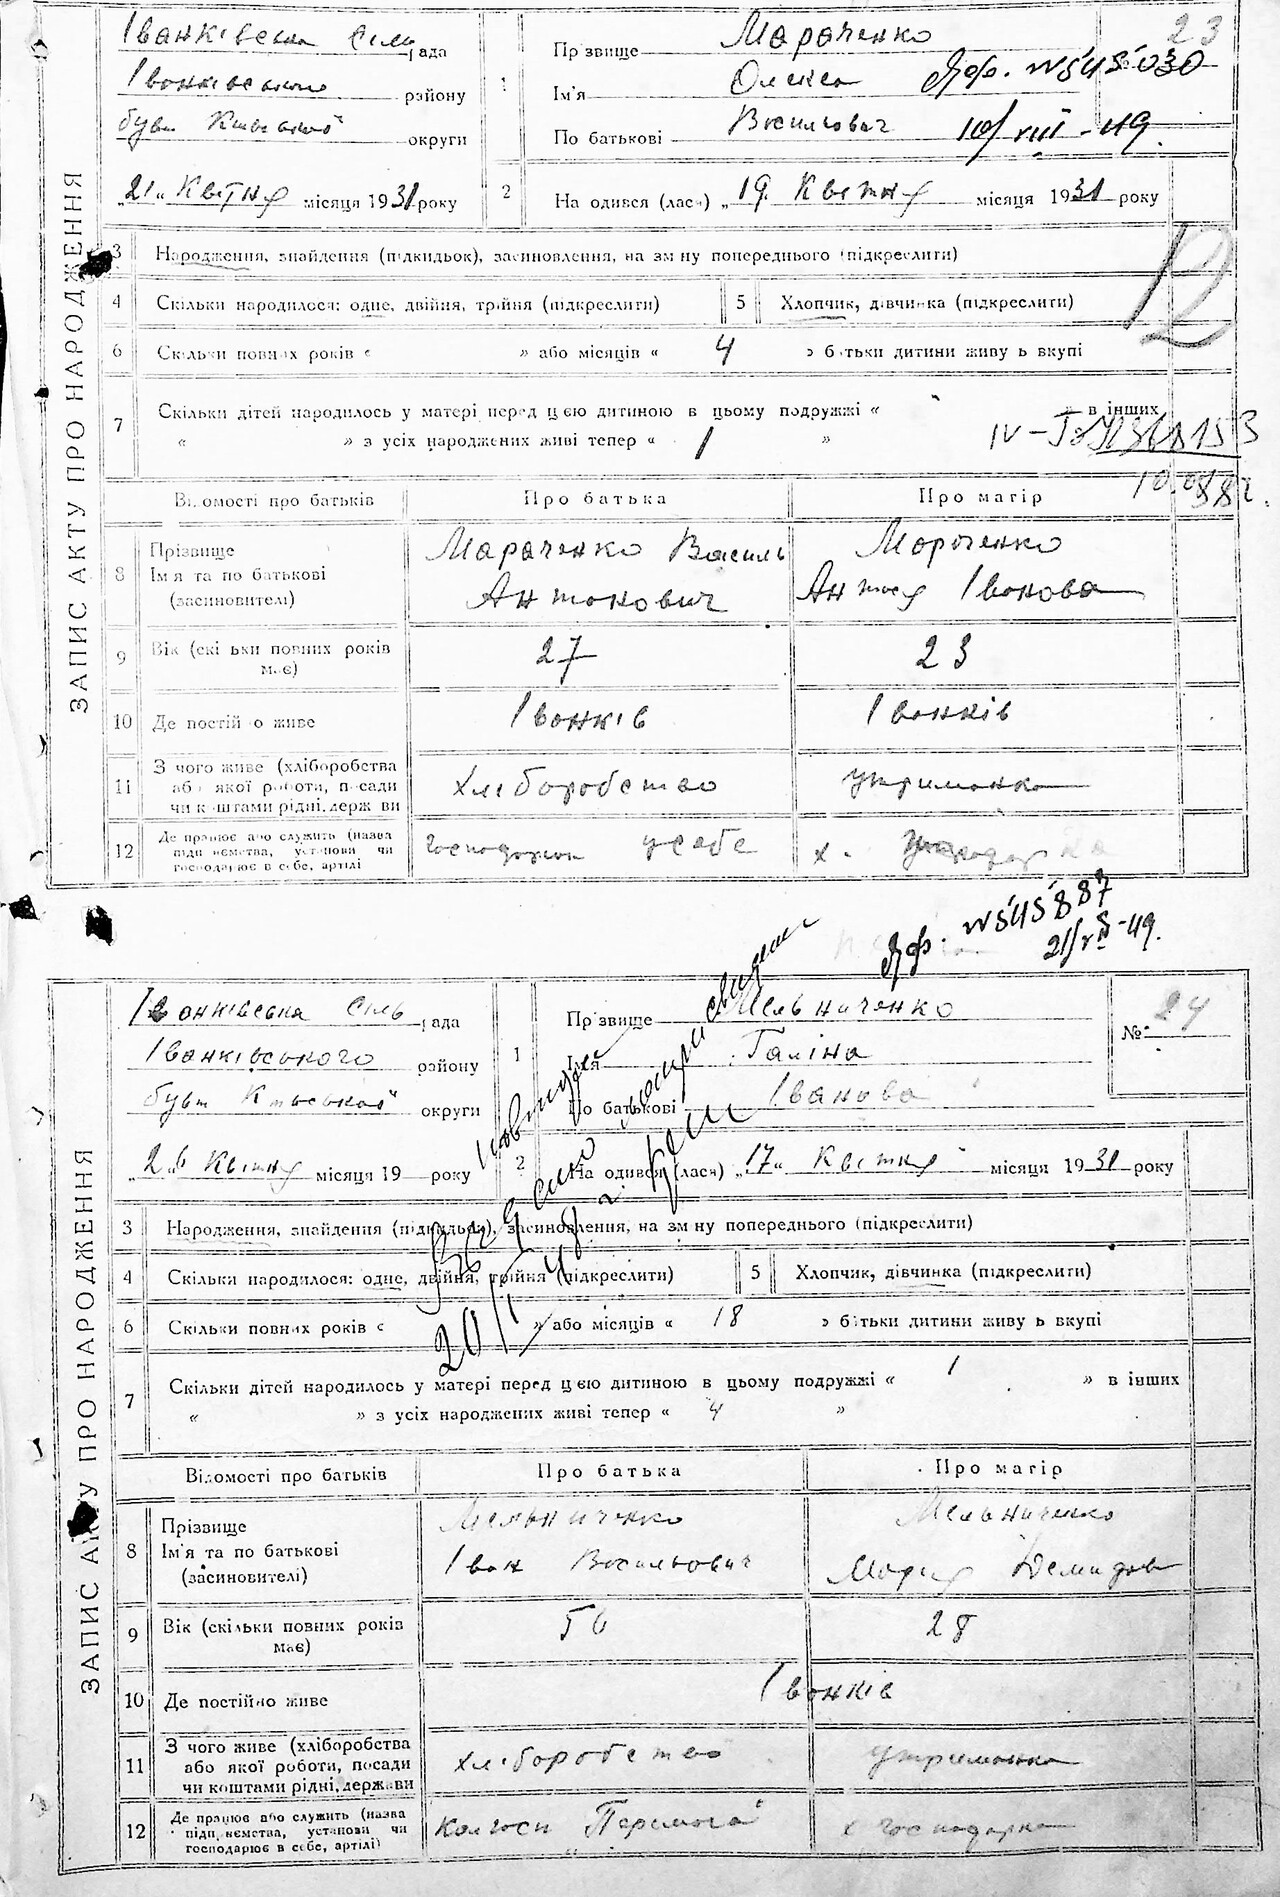 ЗАПИС АКТУ ПРО НАРОДЖЕННЯ
Іванківська Сіль рада
Іванківського району
бувш Київської округи
„21" Квітня місяця 1931 року
23
1 Прізвище Мараченко
Ім'я Олекса
По батькові Васильович
№ 545030
10/VIII-49.
2 Народився (лася) „19" Квітня місяця 1931 року
3 Народження, знайдення (підкидьок), засиновлення, на зміну попереднього (підкреслити)
12
4 Скільки народилося: одне, двійня, трійня (підкреслити)
5 Хлопчик, дівчинка (підкреслити)
6 Скільки повних років « » або місяців « 4 » батьки дитини живуть вкупі
7 Скільки дітей народилось у матері перед цією дитиною в цьому подружжі « » в інших
« » з усіх народжених живі тепер « 1 »
Відомості про батьків Про батька Про матір
8 Прізвище Ім'я та по батькові (засиновителі)
Мараченко Василь Антонович
Мороченко Антося Іванова
9 Вік (скільки повних років має) 27 23
10 Де постійно живе Іванків Іванків
11 З чого живе (хліборобства або якої роботи, посади чи коштами рідні, держави
хліборобство утриманка
12 Де працює або служить (назва підприємства, установи чи господарює в себе, артілі
господарює у себе
№ 545887
21/VIII-49.
ЗАПИС АКТУ ПРО НАРОДЖЕННЯ
Іванківська Сіль рада
Іванківського району
бувш Київської округи
„26" Квітня місяця 19 року
№ 24
1 Прізвище Мельниченко
Ім'я Галіна
По батькові Іванова
2 Народився (лася) „17" Квітня місяця 1931 року
3 Народження, знайдення (підкидьок), засиновлення, на зміну попереднього (підкреслити)
4 Скільки народилося: одне, двійня, трійня (підкреслити)
5 Хлопчик, дівчинка (підкреслити)
6 Скільки повних років « » або місяців « 18 » батьки дитини живуть вкупі
7 Скільки дітей народилось у матері перед цією дитиною в цьому подружжі « 1 » в інших
« » з усіх народжених живі тепер « 4 »
Відомості про батьків Про батька Про матір
8 Прізвище Ім'я та по батькові (засиновителі)
Мельниченко Іван Васильович
Мельниченко Мария Демидов
9 Вік (скільки повних років має) 50 28
10 Де постійно живе Іванків
11 З чого живе (хліборобства або якої роботи, посади чи коштами рідні, держави
хліборобство утриманка
12 Де працює або служить (назва підприємства, установи чи господарює в себе, артілі)
Колгосп „Перемога" х господарка